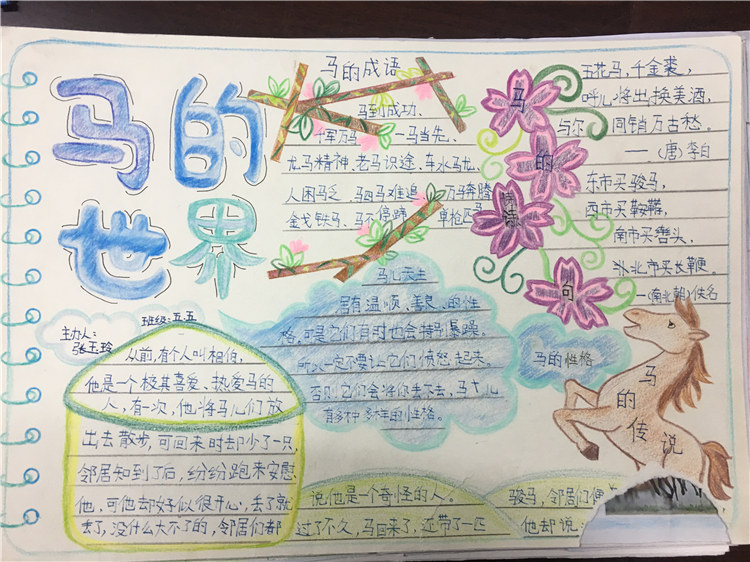 马的
世界
主办人：
张玉玲
班级：五.五
马的成语
马到成功、
千军万马 一马当先、
龙马精神、老马识途、车水马龙、
人困马乏、驷马难追、万马奔腾
金戈铁马、马不停蹄、单枪匹马
马的诗句
五花马，千金裘，
呼儿将出换美酒，
与尔 同销万古愁。
——（唐）李白
东市买骏马，
西市买鞍鞯，
南市买辔头，
北市买长鞭。
—（南北朝）佚名
马的性格
马儿天生
具有温顺、善良、的性
格，可是它们有时也会特别暴躁，
所以一定不要让它们愤怒起来。
否则它们会将你丢下去、马大儿
有多种多样的性格。
马的传说
从前，有个人叫相伯，
他是一个极其喜爱、热爱马的
人，有一次，他将马儿们放
出去散步，可回来时却少了一只，
邻居知到了后，纷纷跑来安慰
他，可他却好似很开心，丢了就
丢了，没什么大不了的，邻居们都
说他是一个奇怪的人。
过了不久，马回来了，还带了一匹
骏马，邻居们便
他却说：